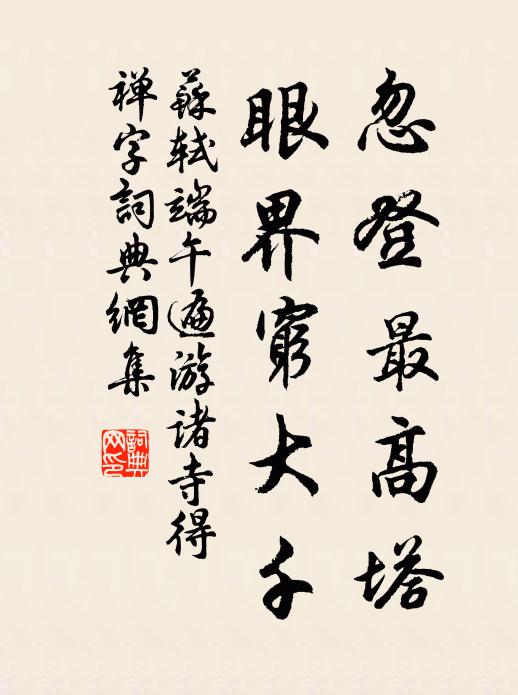 忽登最高塔
眼界窮大千
蘇軾端午遍游诸寺得
禅字詞典網集
詞典
网印